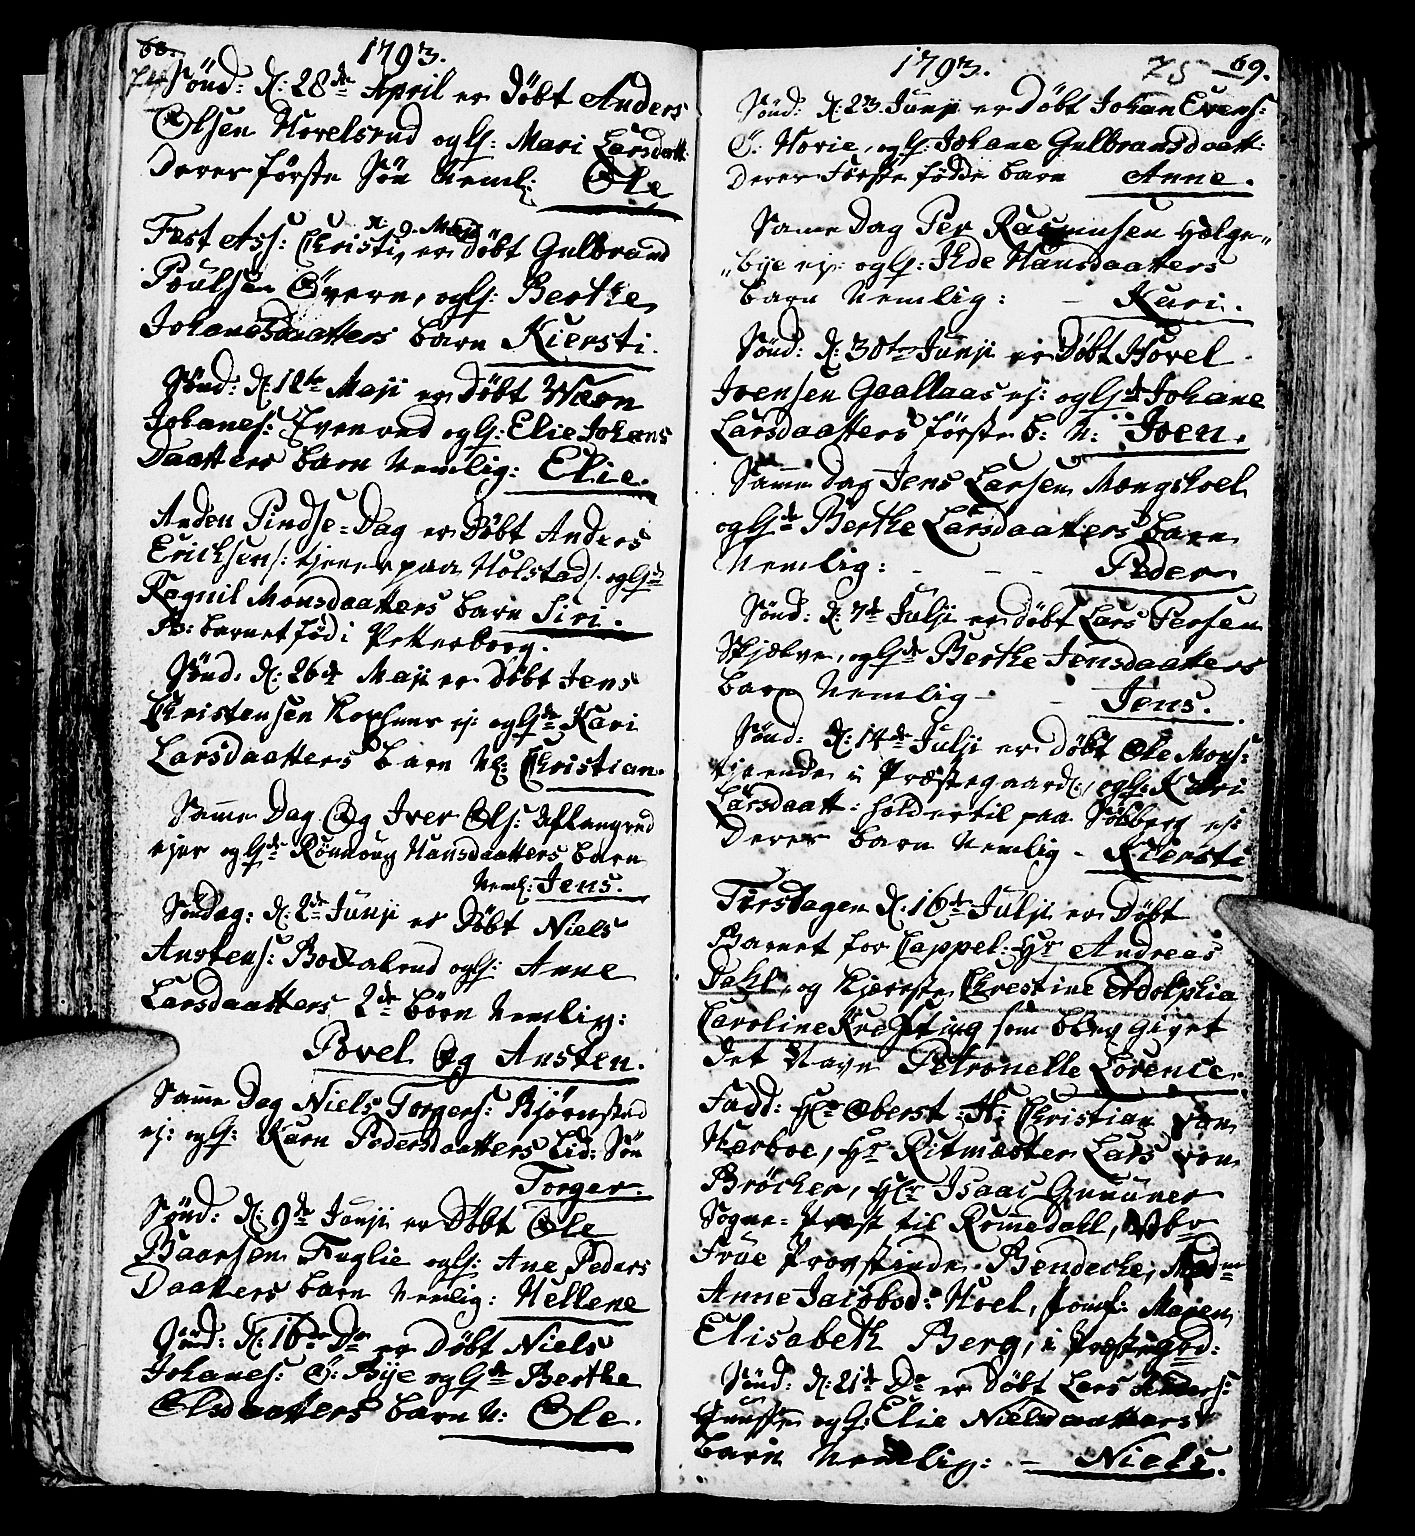 68.
74
1793.
Sönd: d: 28de April er Döbt Anders
Olsen Horelsrud og Hs: Mari Larsdatt:
Deres förste Sön Neml: Ole
Fest Ass: Christi, d: 9. Maji er Döbt Gulbrand
Poulsen Övern, og Hs: Berthe
Johanesdaatters barn Kiersti.
Sönd: d: 12te Maji er Döbt
Johanes: og Hs: Elie Johans
Daatters barn Nemlig: Elie.
Anden Pindse-Dag er Döbt Anders
Erichsen /: tjener paa Holstad /: og Hs
Ragnil Monsdaatters barn Siri.
barnet föd i Petterborg.
Sönd. d: 26de Maji er Döbt Jens
Christensen ej: og Hsde Kari
Larsdaatters barn N: Christian.
Samme Dag Og Iver Ols: Aflangrud
ejer og Hsde Rönnoug Hansdaatters barn
Neml: Jens.
Söndag: d: 2de Junji er Döbt Niels
Austens: og Hs: Anne
Larsdaatters 2de börn Nemlig:
Povel Og Austen.
Samme Dag Niels Torgers: Kjörnstad
ej: og Hs: Karn Pedersdaatters Lid: Sön
Torger.
Sönd: d: 9de Junji er Döbt Ole
Baarsen Fuglie og Hs: Ane Peders
Daatters barn Nemlig: Hellene
Sönd: d: 16de Do er Döbt Niels
Johanes: Ö: Bije og Hsde Berthe
Olsdaatters barn N: Ole.
1793.
75
69.
Sönd: d: 23. Junji er Döbt Johan Evens:
Ö: Horie, og Hs: Johane Gulbransdaatt:
Deres Förste födde barn Anne.
Samme Dag Per Rasmusen Hælge„
„bije ej: og Hs: Ilde Hansdaatters
barn Nemlig: - Kari.
Sönd: d: 30te Junji er Döbt Horel
Joensen Gaallaas ej: og Hsde Johane
Larsdaatters förste b: N: Joen.
Samme Dag Jens Larsen Mængshoel
og Hsde Berthe Larsdaatters barn
Nemlig: - - - Peder
Sönd: d: 7de Julji er Döbt Lars Persen
Skjælve, og Hsde Berthe Jensdaatters
barn Nemlig - Jens.
Sönd: d: 14de Julji er Döbt Ole Mons:
tjenende i Præstegaard:, og Hs: Kari
Larsdaatt: holder til paa Söbberg ej:
Deres barn Nemlig - Kiersti
Tirsdagen d: 16de Julji er Döbt
Barnet for Cappel: Hr Andreas
Dahl, og Kjereste Chrestine Adolphia
Caroline Krefting som blev givet
det Navn Petronelle Lorence.
Fadd: Hr Oberst H: Christian von
Nærboe, Hr Ritmæster Lars von
Bröcher, Hr Isaac Grüüner
Sogne-Præst til Romedall,
Frue Provstinde Bendeche, Madme
Anne Jacobsd: Hoel, Jomf: Maren
Elisabeth Berg, i Præstegrd:
Sönd: d: 21de Do er Döbt Lars Anders:
og Hs: Elie Nielsdaatters
barn Nemlig: - Niels.